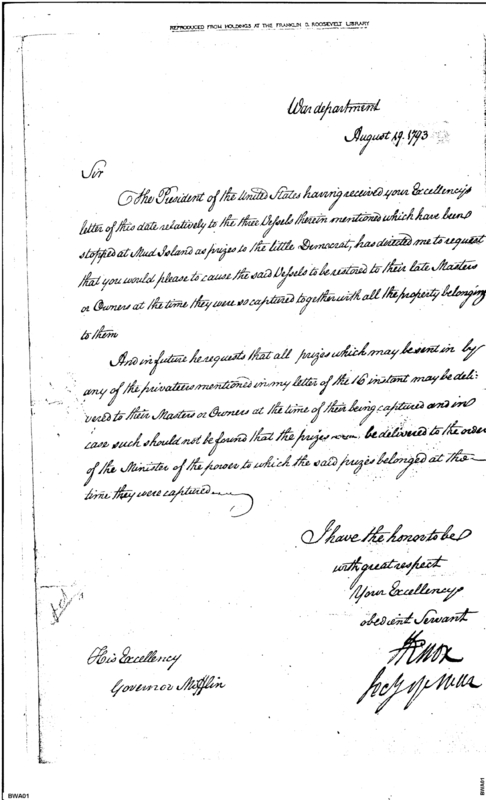 REPRODUCED FROM HOLDINGS AT THE FRANKLIN D. ROOSEVELT LIBRARY
War department
August 19. 1793
Sir
The President of the United States having received your Excellency's
letter of this date relatively to the three Vessels therein mentioned which have been
stopped at Mud Island as prizes to the little Democrat, has directed me to request
that you would please to cause the said Vessels to be restored to their late Masters
or Owners at the time they were so captured together with all the property belonging
to them
And in future he requests that all prizes which may be sent in by
any of the privateers mentioned in my letter of the 16 instant may be deli:
vered to their Masters or Owners at the time of their being captured and in
case such should not be found that the prizes be delivered to the order
of the Minister of the power to which the said prizes belonged at the
time they were captured
I have the honor to be
with great respect
Your Excellency
obedient Servant
HKnox
Secy of War
His Excellency
Governor Mifflin
BWA01
BWA01